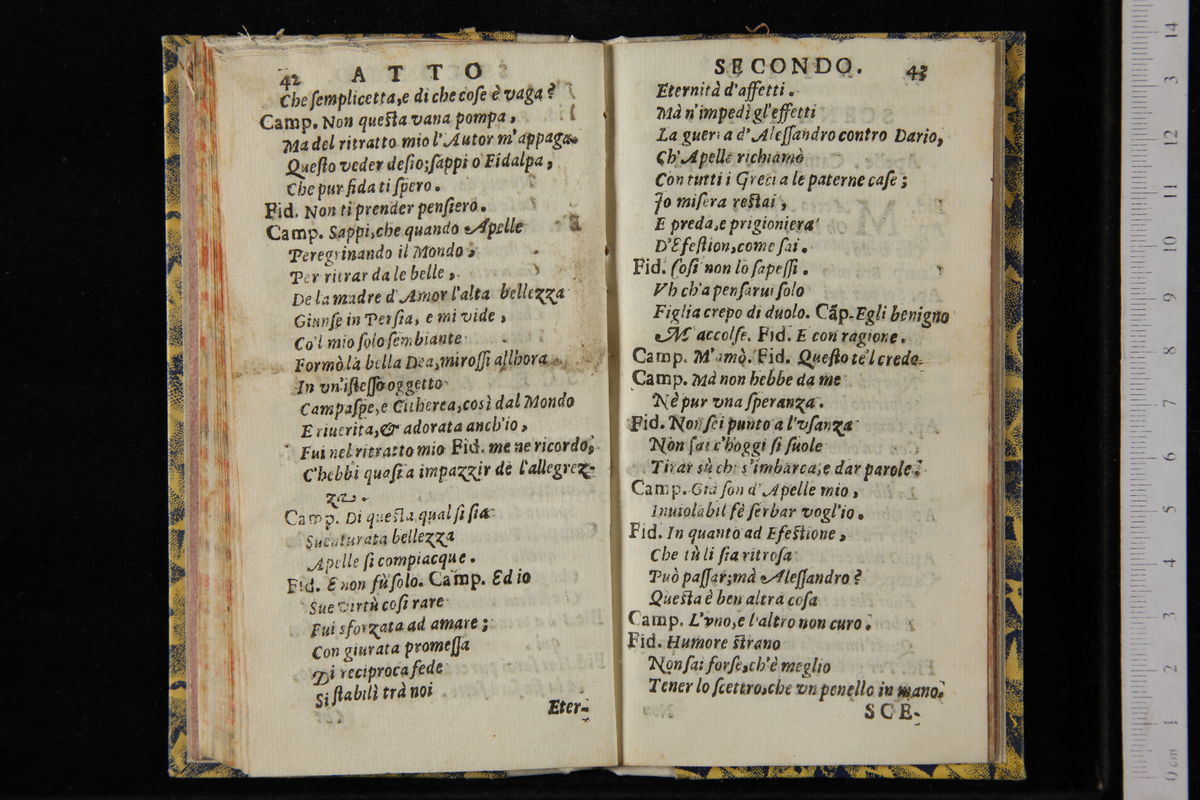 42 ATTO
Che ſemplicetta, e di che coſe è vaga?
Camp. Non queſta vana pompa,
Ma del ritratto mio l'Autor m'appaga.
Queſto veder deſio; ſappi ò Fidalpa,
Che pur fida ti ſpero.
Fid. Non ti prender penſiero.
Camp. Sappi, che quando Apelle
Peregrinando il Mondo,
Per ritrar da le belle,
De la madre d'Amor l'alta bellezza
Giunſe in Perſia, e mi vide,
Co'l mio ſolo ſembiante
Formò la bella Dea, miroſſi allhora
In vn'iſteſſo oggetto
Campaſpe, e Citherea, così dal Mondo
E riuerita, & adorata anch'io,
Fui nel ritratto mio Fid. me ne ricordo,
C'hebbi quaſi a impazzir de l'allegrez-
za.
Camp. Di queſta qual ſi ſia
Suenturata bellezza
Apelle ſi compiacque.
Fid. E non fù ſolo. Camp. Ed io
Sue virtù coſi rare
Fui sforzata ad amare;
Con giurata promeſſa
Di reciproca fede
Si ſtabilì trà noi
Eter-
SECONDO. 43
Eternità d'affetti.
Mà n'impedì gl'effetti
La guerra d'Aleſſandro contro Dario,
Ch'Apelle richiamò
Con tutti i Greci a le paterne caſe;
Io miſera reſtai,
E preda, e prigioniera
D'Efeſtion, come ſai.
Fid. Coſi non lo ſapeſſi.
Vh ch'a penſarui ſolo
Figlia crepo di duolo. Cãp. Egli benigno
M'accolſe. Fid. E con ragione.
Camp. M'amò. Fid. Queſto te'l credo
Camp. Mà non hebbe da me
Nè pur vna ſperanza.
Fid. Non ſei punto a l'vſanza
Non ſai c'hoggi ſi ſuole
Tirar sù chi s'imbarca, e dar parole.
Camp. Già ſon d'Apelle mio,
Inuiolabil fè ſerbar vogl'io.
Fid. In quanto ad Efeſtione,
Che tù li ſia ritroſa
Può paſſar; mà Aleſſandro?
Queſta è ben altra coſa
Camp. L'vno, e l'altro non curo.
Fid. Humore ſtrano
Non ſai forſe, ch'è meglio
Tener lo ſcettro, che vn penello in mano.
SCE-
0 cm 1 2 3 4 5 6 7 8 9 10 11 12 3 14